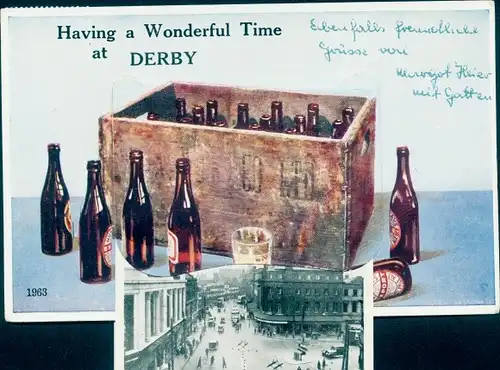 Having a Wonderful Time
at DERBY
Ebenfalls freundliche
Grüsse von
mit Gatten
1963